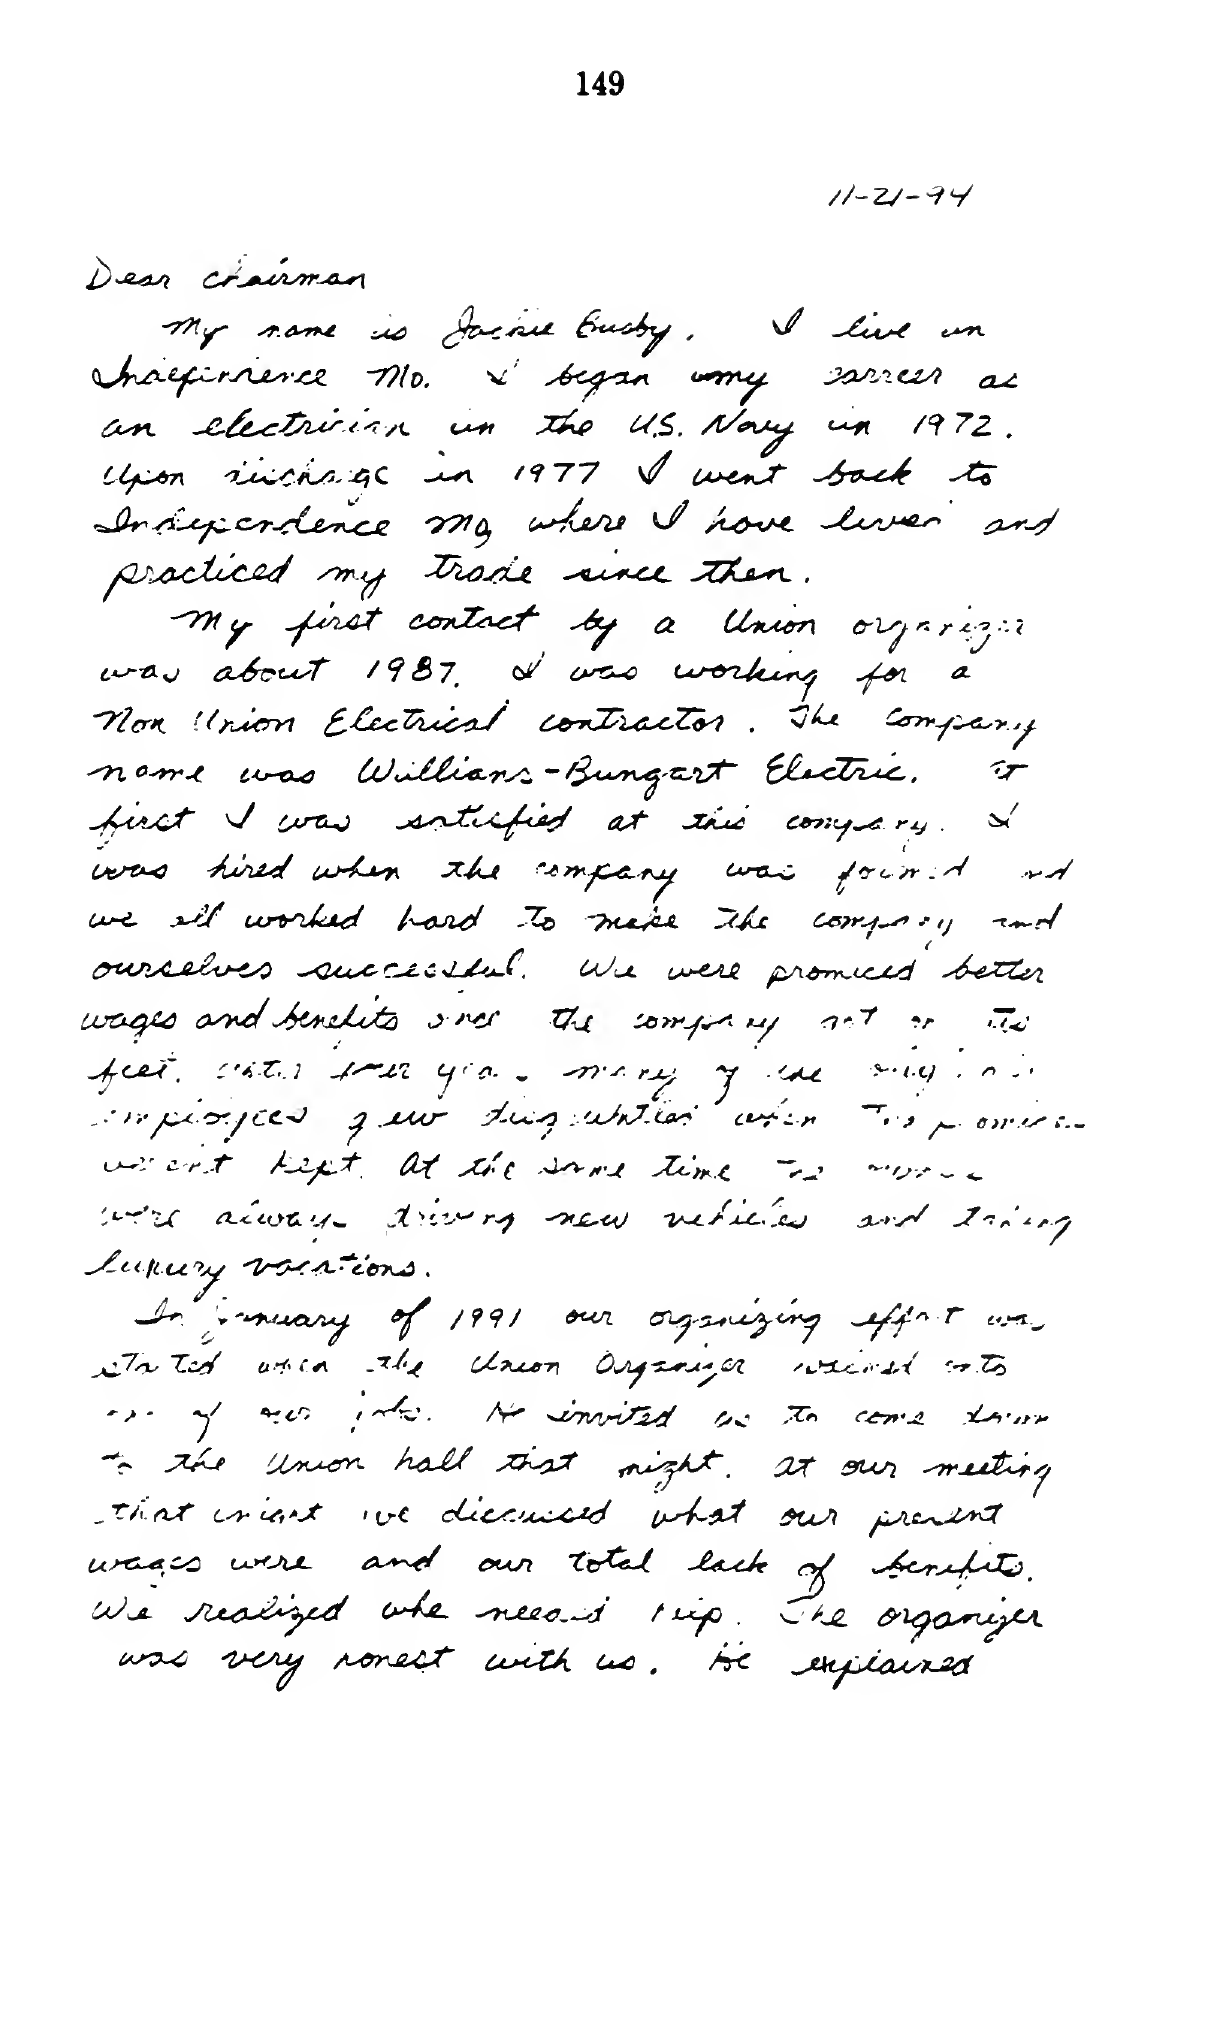 149
11-21-94
Dear Chairman
My name is Jackie Busby. I live in
Independence Mo. I began my carreer as
an electrician in the U.S. Navy in 1972.
Upon discharge in 1977 I went back to
Independence Mo, where I have lived and
practiced my trade since then.
My first contact by a Union organizer
was about 1987. I was working for a
Non Union Electrical contractor. The company
name was Williams-Bungart Electric. At
first I was satisfied at this company. I
was hired when the company was formed and
we all worked hard to make the company and
ourselves successful. We were promised better
wages and benefits once the company got on its
feet. after four years many of the original
employees grew when the promises
weren't kept. At the same time the
were always driving new vehicles and taking
luxury vacations.
In January of 1991 our organizing effort was
started when the Union Organizer walked onto
one of our jobs. He invited us to come down
to the Union hall that night. At our meeting
that night we discussed what our present
wages were and our total lack of benefits.
We realized whe needed help. The organizer
was very honest with us. He explained